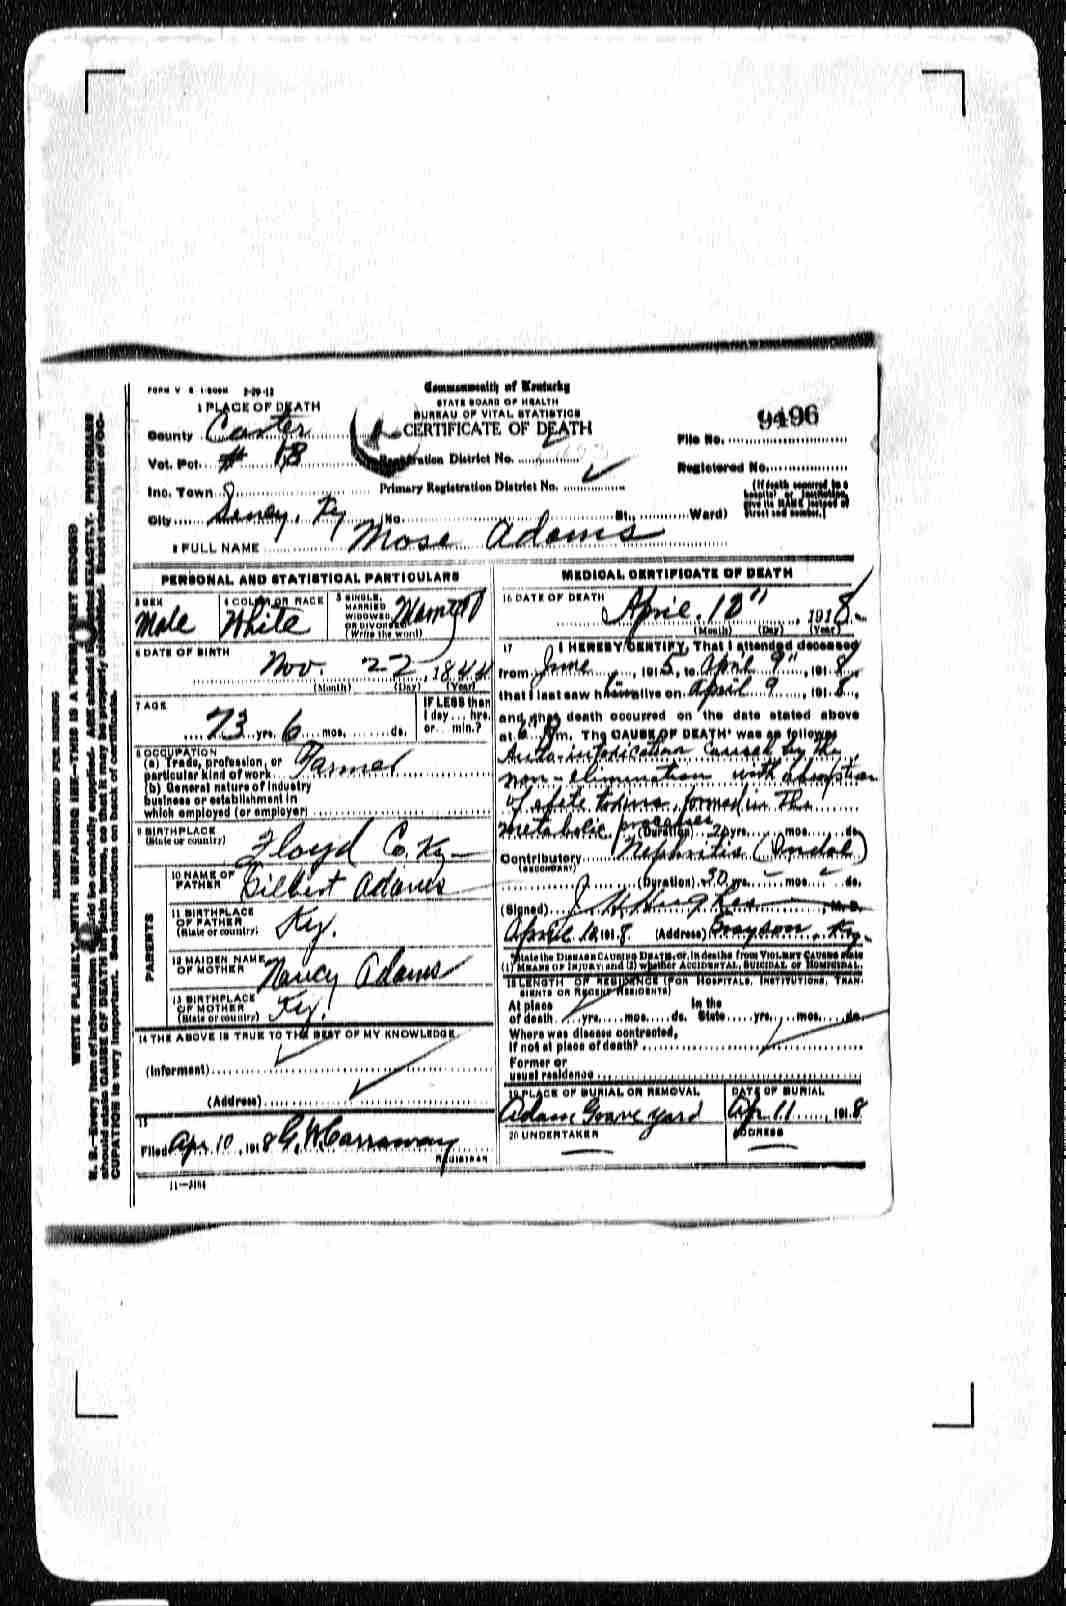 FORM V S 1-500M 3-29-12
Commonwealth of Kentucky
STATE BOARD OF HEALTH
BUREAU OF VITAL STATISTICS
CERTIFICATE OF DEATH
1 PLACE OF DEATH
County Carter
Vot. Pct. # 18
Inc. Town
City Ky No. St., Ward)
Registration District No.
Primary Registration District No.
File No. 9496
Registered No.
(If death occurred in a hospital or institution, give its NAME instead of street and number.)
2 FULL NAME Mose Adams
PERSONAL AND STATISTICAL PARTICULARS
3 SEX Male
4 COLOR OR RACE White
5 SINGLE, MARRIED, WIDOWED, OR DIVORCED (Write the word)
6 DATE OF BIRTH Nov 22, 1844
(Month) (Day) (Year)
7 AGE 73 yrs. 6 mos. ds.
IF LESS than 1 day... hrs. or... min.?
8 OCCUPATION
(a) Trade, profession, or particular kind of work Farmer
(b) General nature of industry
business or establishment in
which employed (or employer)
9 BIRTHPLACE
(State or country) Floyd Co, Ky
PARENTS
10 NAME OF FATHER Gilbert Adams
11 BIRTHPLACE OF FATHER (State or country) Ky.
12 MAIDEN NAME OF MOTHER Nancy Adams
13 BIRTHPLACE OF MOTHER (State or country) Ky.
14 THE ABOVE IS TRUE TO THE BEST OF MY KNOWLEDGE
(Informant)
(Address)
15
Filed Apr 10, 1918 G. W. Carraway
REGISTRAR
11-3184
MEDICAL CERTIFICATE OF DEATH
16 DATE OF DEATH April 1918
(Month) (Day) (Year)
17 I HEREBY CERTIFY, That I attended deceased
from June, 1915, to April 9", 1918,
that I last saw him alive on April 9, 1918,
and that death occurred on the date stated above
at 6 P m. The CAUSE OF DEATH was as follows
Auto-intoxication caused by the
non-elimination with absorption
of effete toxins formed in the
metabolic processes
(Duration) yrs. mos. ds.
Contributory Nephritis
(SECONDARY)
(Duration) 30 yrs. mos. ds.
(Signed) J W Hughes, M. D.
April 10, 1918 (Address) Grayson, Ky.
State the DISEASE CAUSING DEATH, or, in deaths from VIOLENT CAUSES state
(1) MEANS OF INJURY; and (2) whether ACCIDENTAL, SUICIDAL or HOMICIDAL.
18 LENGTH OF RESIDENCE (FOR HOSPITALS, INSTITUTIONS, TRANSIENTS OR RECENT RESIDENTS)
At place of death yrs. mos. ds. In the State yrs. mos. ds.
Where was disease contracted,
If not at place of death?
Former or
usual residence
19 PLACE OF BURIAL OR REMOVAL
Adam Grave yard
DATE OF BURIAL
Apr 11, 1918
20 UNDERTAKER
ADDRESS
MARGIN RESERVED FOR BINDING
WRITE PLAINLY, WITH UNFADING INK—THIS IS A PERMANENT RECORD
N. B.—Every item of information should be carefully supplied. AGE should be stated EXACTLY. PHYSICIANS
should state CAUSE OF DEATH in plain terms, so that it may be properly classified. Exact statement of OC-
CUPATION is very important. See instructions on back of certificate.